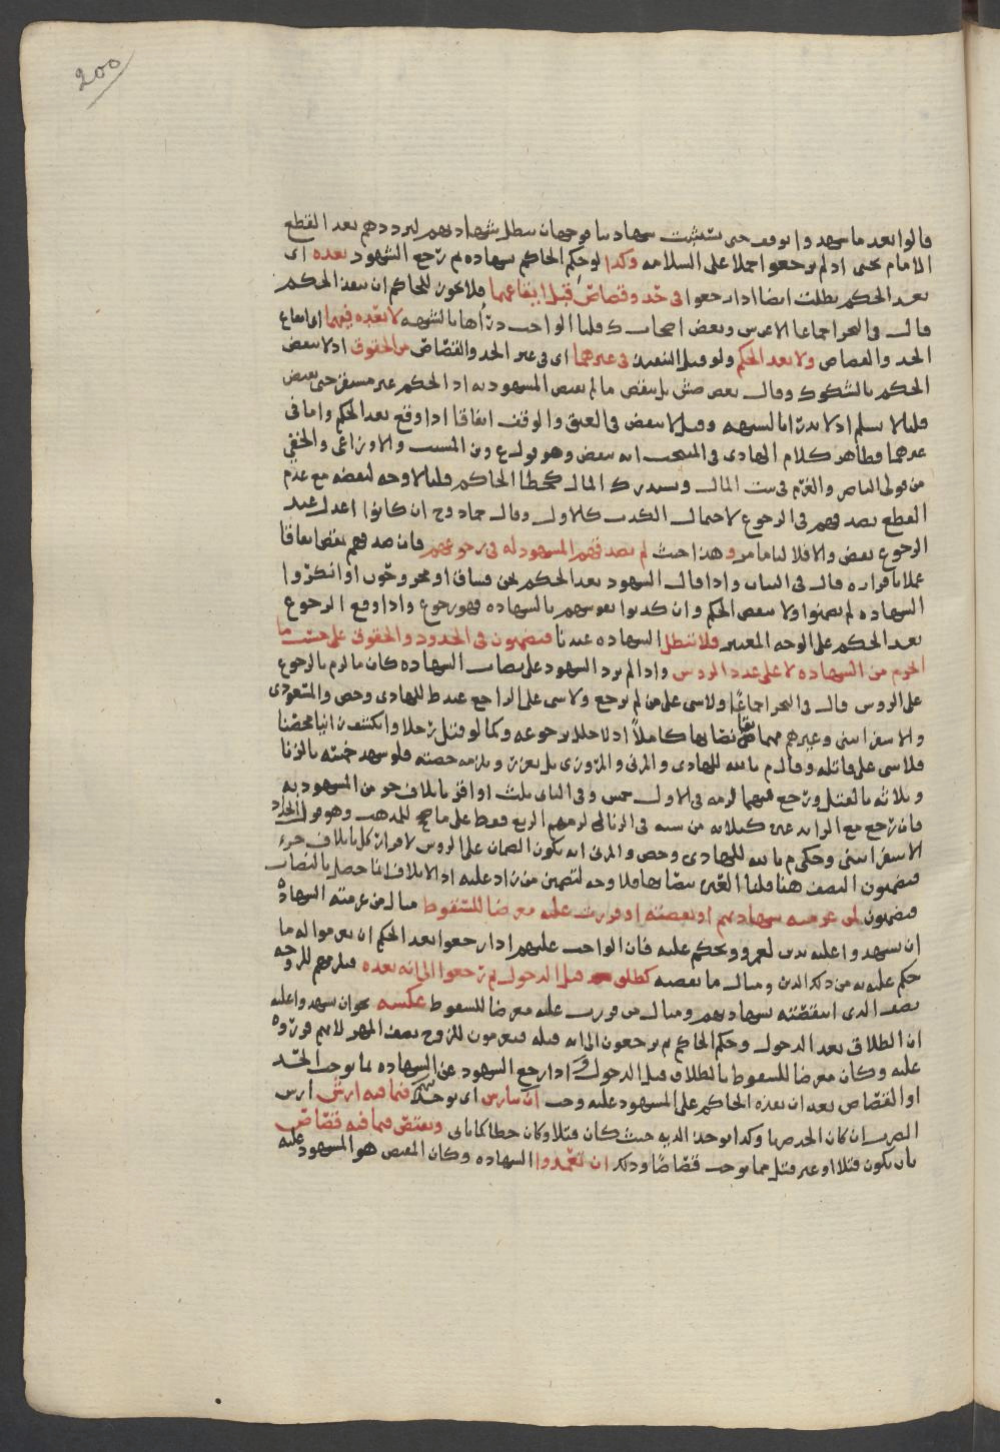 200
قالوا بعد ما شهدوا توقف حتى نتثبت شهادتنا فوجهان تبطل شهادتهم لترددهم بعد القطع
الامام يحيى اذ لم يرجعوا حملا على السلامه وكذا لو حكم الحاكم بشهاده ثم رجع الشهود بعده اى
بعد الحكم بطلت ايضا اذا رجعوا فى حد وقصاص قبل ايقاعهما فلا يجوز للحاكم ان ينفذ الحكم
قال فى البحر اجماعا الا عن وبعض اصحاب ك قلنا الواجب درأها بالشبهه لا بعده فيهما اى ايقاع
الحد والقصاص ولا بعد الحكم ولو قبل التنفيذ فى غيرهما اى فى غير الحد والقصاص من الحقوق اذ لا ينقض
الحكم بالشكوك وقال بعض صش بل ينقض ما لم يقبض المشهود به اذ الحكم غير مستقر حتى يقبض
قلنا لا نسلم اذ لا يدرا بالشبهه وقيل لا ينقض فى العتق والوقف اتفاقا اذا وقع بعد الحكم واما فى
غيرهما فظاهر كلام الهادى فى المنتخب انه ينقض وهو قول ع وبن المسيب والاوزاعى والحنفى
من قولى الناصر والغرم فى بيت المال ويستدرك المال كخطا الحاكم قلنا لا وجه لنقضه مع عدم
القطع بصدقهم فى الرجوع لاحتمال الكذب كالاول وقال حماد وح ان كانوا اعدل عند
الرجوع نقض والا فلا لنا ما مر وهذا حيث لم يصدقهم المشهود له فى رجوعهم فان صدقهم نقض اتفاقا
عملا باقراره قال فى البيان واذا قال الشهود بعد الحكم نحن فساق او مجروحون او انكروا
الشهاده لم يضمنوا ولا ينقض الحكم وان كذبوا نفوسهم بالشهاده فهو رجوع واذا وقع الرجوع
بعد الحكم على الوجه المعتبر فلا تبطل الشهاده عندنا فيضمنون فى الحدود والحقوق على حسب ما
انخرم من الشهاده لا على عدد الروس واذا لم يزد الشهود على نصاب الشهاده كان ما لزم بالرجوع
على الروس قال فى البحر اجماعا ولا شى على من لم يرجع ولا شى على الراجع عند ط للهادى وحص والمسعودى
والاسفرائينى وغيرهم مهما بقى نصابها كاملا اذ لا خلل برجوعه وكما لو قتل رجلا وانكشف زانيا محصنا
فلا شى على قاتله وقال م بالله للهادى والمزنى والمروزى بل يعزر ويلزمه حصته فلو شهد خمسه بالزنا
وثلاثه بالقتل ورجع فيهما لزمه فى الاول خمس وفى الثانى ثلث اذ اقر باتلاف جز من المشهود به
فان رجع مع الزايد غيره كثلاثه من سته فى الزنا لزمهم الربع فقط على ما صح للمذهب وهو قول
الاسفرائينى وحكى م بالله للهادى وحص والمزنى انه يكون الضمان على الروس لاقرار كل باتلاف جزء
فيضمنون النصف هنا قلنا العبره بنصابها فلا وجه لتضمين من زاد عليه اذ الاتلاف انما حصل بالنصاب
فيضمنون لمن غرمته شهادتهم او نقصته او قررت عليه معرضا للسقوط مثال من غرمته الشهاده
ان يشهدوا عليه بدين لعمرو ويحكم عليه فان الواجب عليهم اذا رجعوا بعد الحكم ان يغرموا له ما
حكم عليه به من ذلك الدين ومثال ما نقصته كطلاق قبل الدخول ثم رجعوا الى انه بعده فيلزمهم للزوجه
نصف الذى انتقصته بشهادتهم ومثال من قررت عليه معرضا للسقوط عكسه نحو ان يشهدوا عليه
ان الطلاق بعد الدخول وحكم الحاكم ثم يرجعون الى انه قبله فيغرمون للزوج نصف المهر لانهم قرروه
عليه وكان معرضا للسقوط بالطلاق قبل الدخول واذا رجع الشهود عن الشهاده بما يوجب الحد
او القصاص بعد ان نفذه الحاكم على المشهود عليه وجب ان يتارش اى يوخذ منهم فيما فيه ارش ارش
الضرب ان كان الحد ضربا وكذا يوخذ الديه حيث كان قتلا وكان خطا كما ياتى ويقتص فيما فيه قصاص
بان يكون قتلا او غير قتل مما يوجب قصاصا وذلك ان تعمدوا الشهاده وكان المقتص هو المشهود عليه